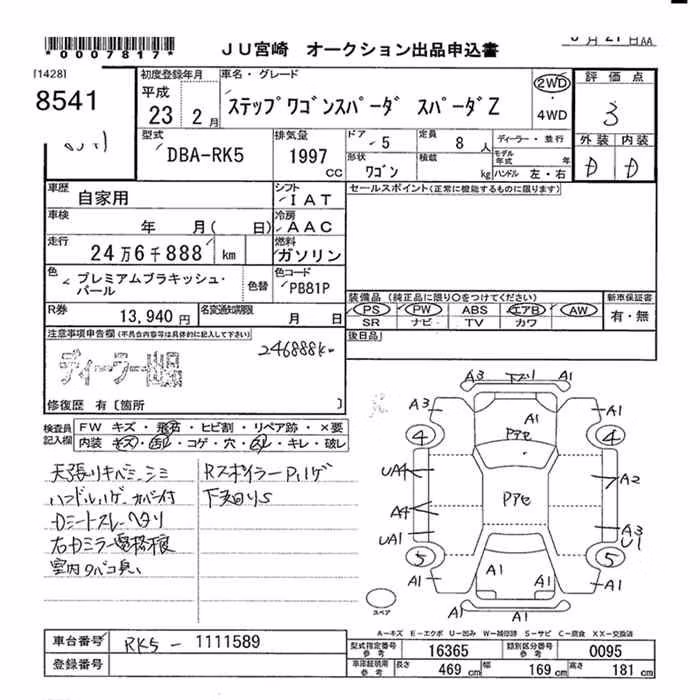 0007817
JU宮崎 オークション出品申込書
月21日AA
[1428]
8541
初度登録年月
平成
23 2月
車名・グレード
ステップワゴンスパーダ スパーダZ
2WD
4WD
評価点
3
外装 内装
D D
型式
DBA-RK5
排気量
1997 CC
ドア 5
形状 ワゴン
定員 8人
積載 kg
ディーラー・並行
モデル年式 年
ハンドル 左・右
車歴 自家用
シフト IAT
セールスポイント(正常に機能するものに限ります)
車検 年 月( 日)
冷房 AAC
走行 24万6千888 km
燃料 ガソリン
色 プレミアムブラキッシュ・パール
色替
色コード PB81P
装備品 (純正品に限り○をつけてください)
新車保証書
有・無
PS PW ABS エアB AW
SR ナビ TV カワ
R券 13,940円
名変通知期限 月 日
後日品
注意事項申告欄 (不具合内容等は具体的に記入して下さい)
246888k
ディーラー出品
修復歴 有[箇所 ]
検査員記入欄
FW キズ・飛石・ヒビ割・リペア跡・×要
内装 キズ・コゲ・穴・スレ・キレ・破レ
天張りキバミ、シミ
ハンドルハゲ、カバー付
Dシートスレ、ヘタリ
右Dミラー電格不良
室内タバコ臭い
RスポイラーPハゲ
下回りS
A3 下スリ A1
A3 A1 A1
Pアセ
4 4
UA4 A2
Pアセ
A4
UA1 A3 U1
5 5
A1 A1 A1 A1
A1 A1
スペア
A-キズ E-エクボ U-凹み W-補修跡 S-サビ C-腐食 XX-交換済
車台番号 RK5-1111589
型式指定番号 参考 16365
類別区分番号 参考 0095
登録番号
車庫証明用 参考 長さ 469 cm 幅 169 cm 高さ 181 cm